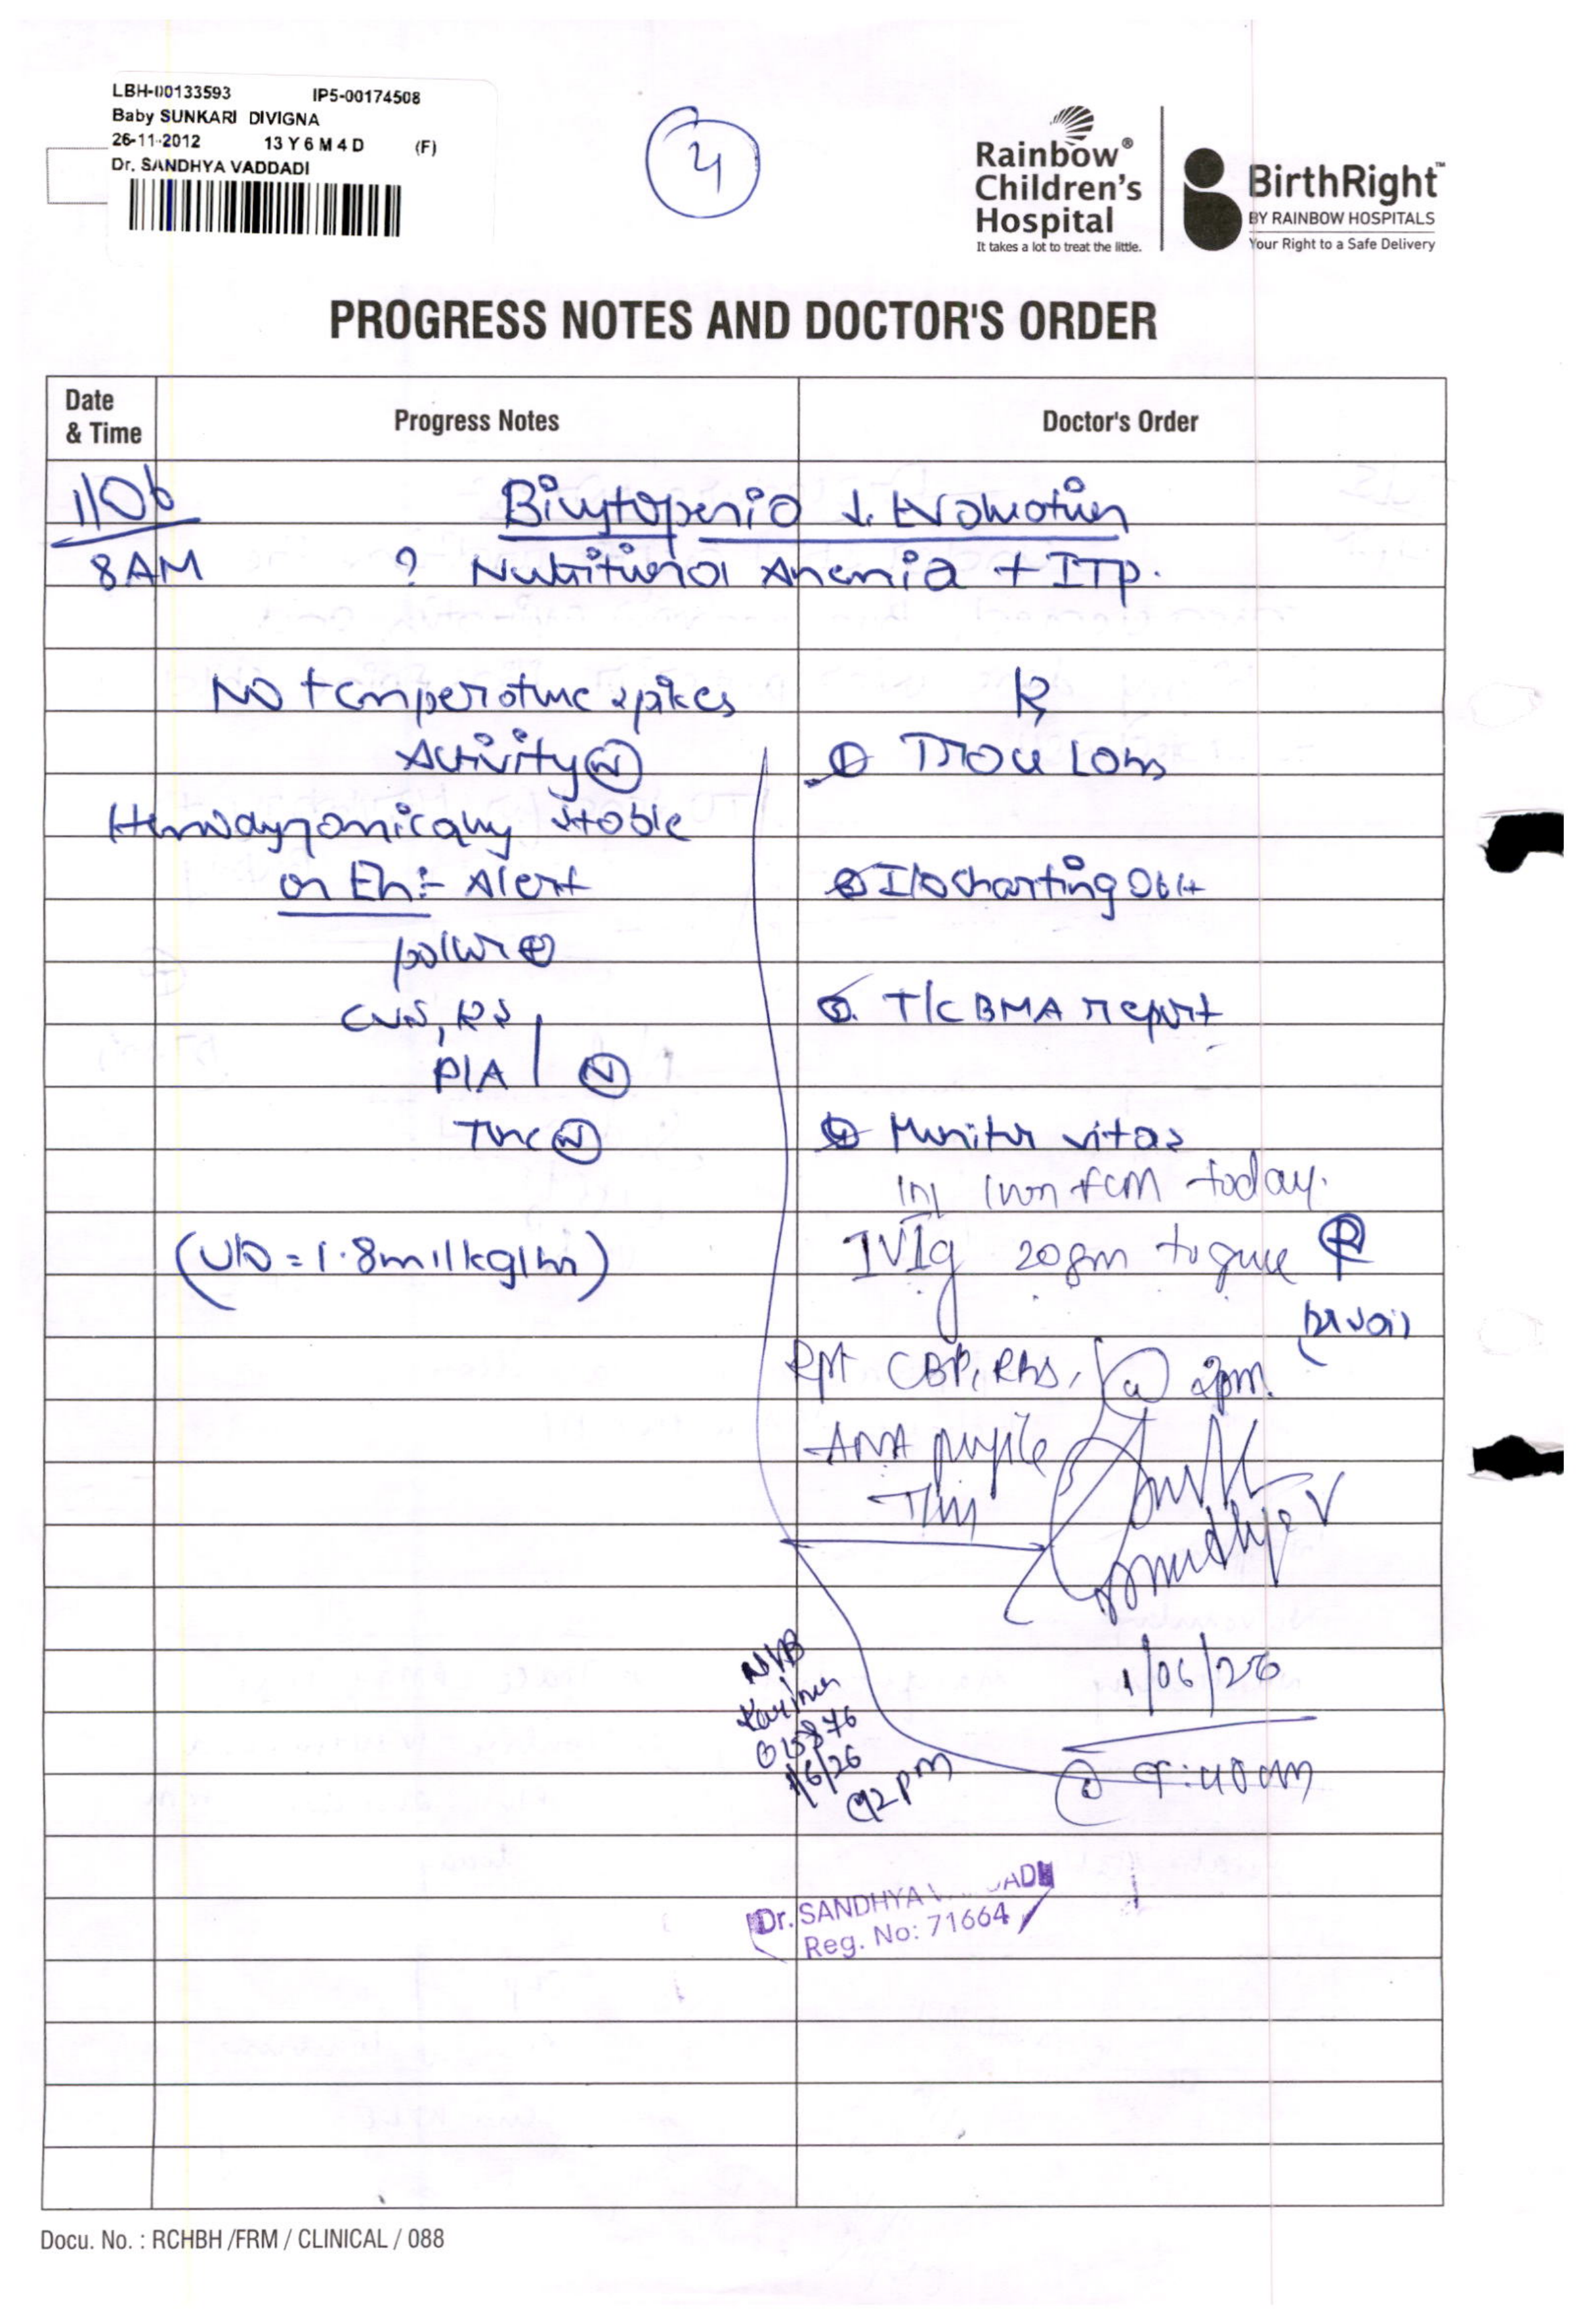 LBH-00133593 IP5-00174508
Baby SUNKARI DIVIGNA
26-11-2012 13 Y 6 M 4 D (F)
Dr. SANDHYA VADDADI
4
Rainbow®
Children's
Hospital
It takes a lot to treat the little.
BirthRight™
BY RAINBOW HOSPITALS
Your Right to a Safe Delivery
PROGRESS NOTES AND DOCTOR'S ORDER
Date
& Time
Progress Notes
Doctor's Order
1/06
8AM
Bicytopenia Evaluation
? Nutritional Anemia + ITP.
No temperature spikes
Activity (N)
Hemodynamically stable
on E/n:- Alert
pallor ⊕
CVS, RS
P/A (N)
(N)
(U/O = 1.8ml/kg/hr)
R
①
② I/O charting
③. T/C BMA report
④ Monitor vitas
inj iron fcm today.
IVIg 20gm to give
Rpt CBP, @ 2pm.
ANA profile
Sandhya V
1/06/26
@ 9:40am
015876
1/6/26
@2pm
Dr. SANDHYA V ADI
Reg. No: 71664
Docu. No. : RCHBH /FRM / CLINICAL / 088